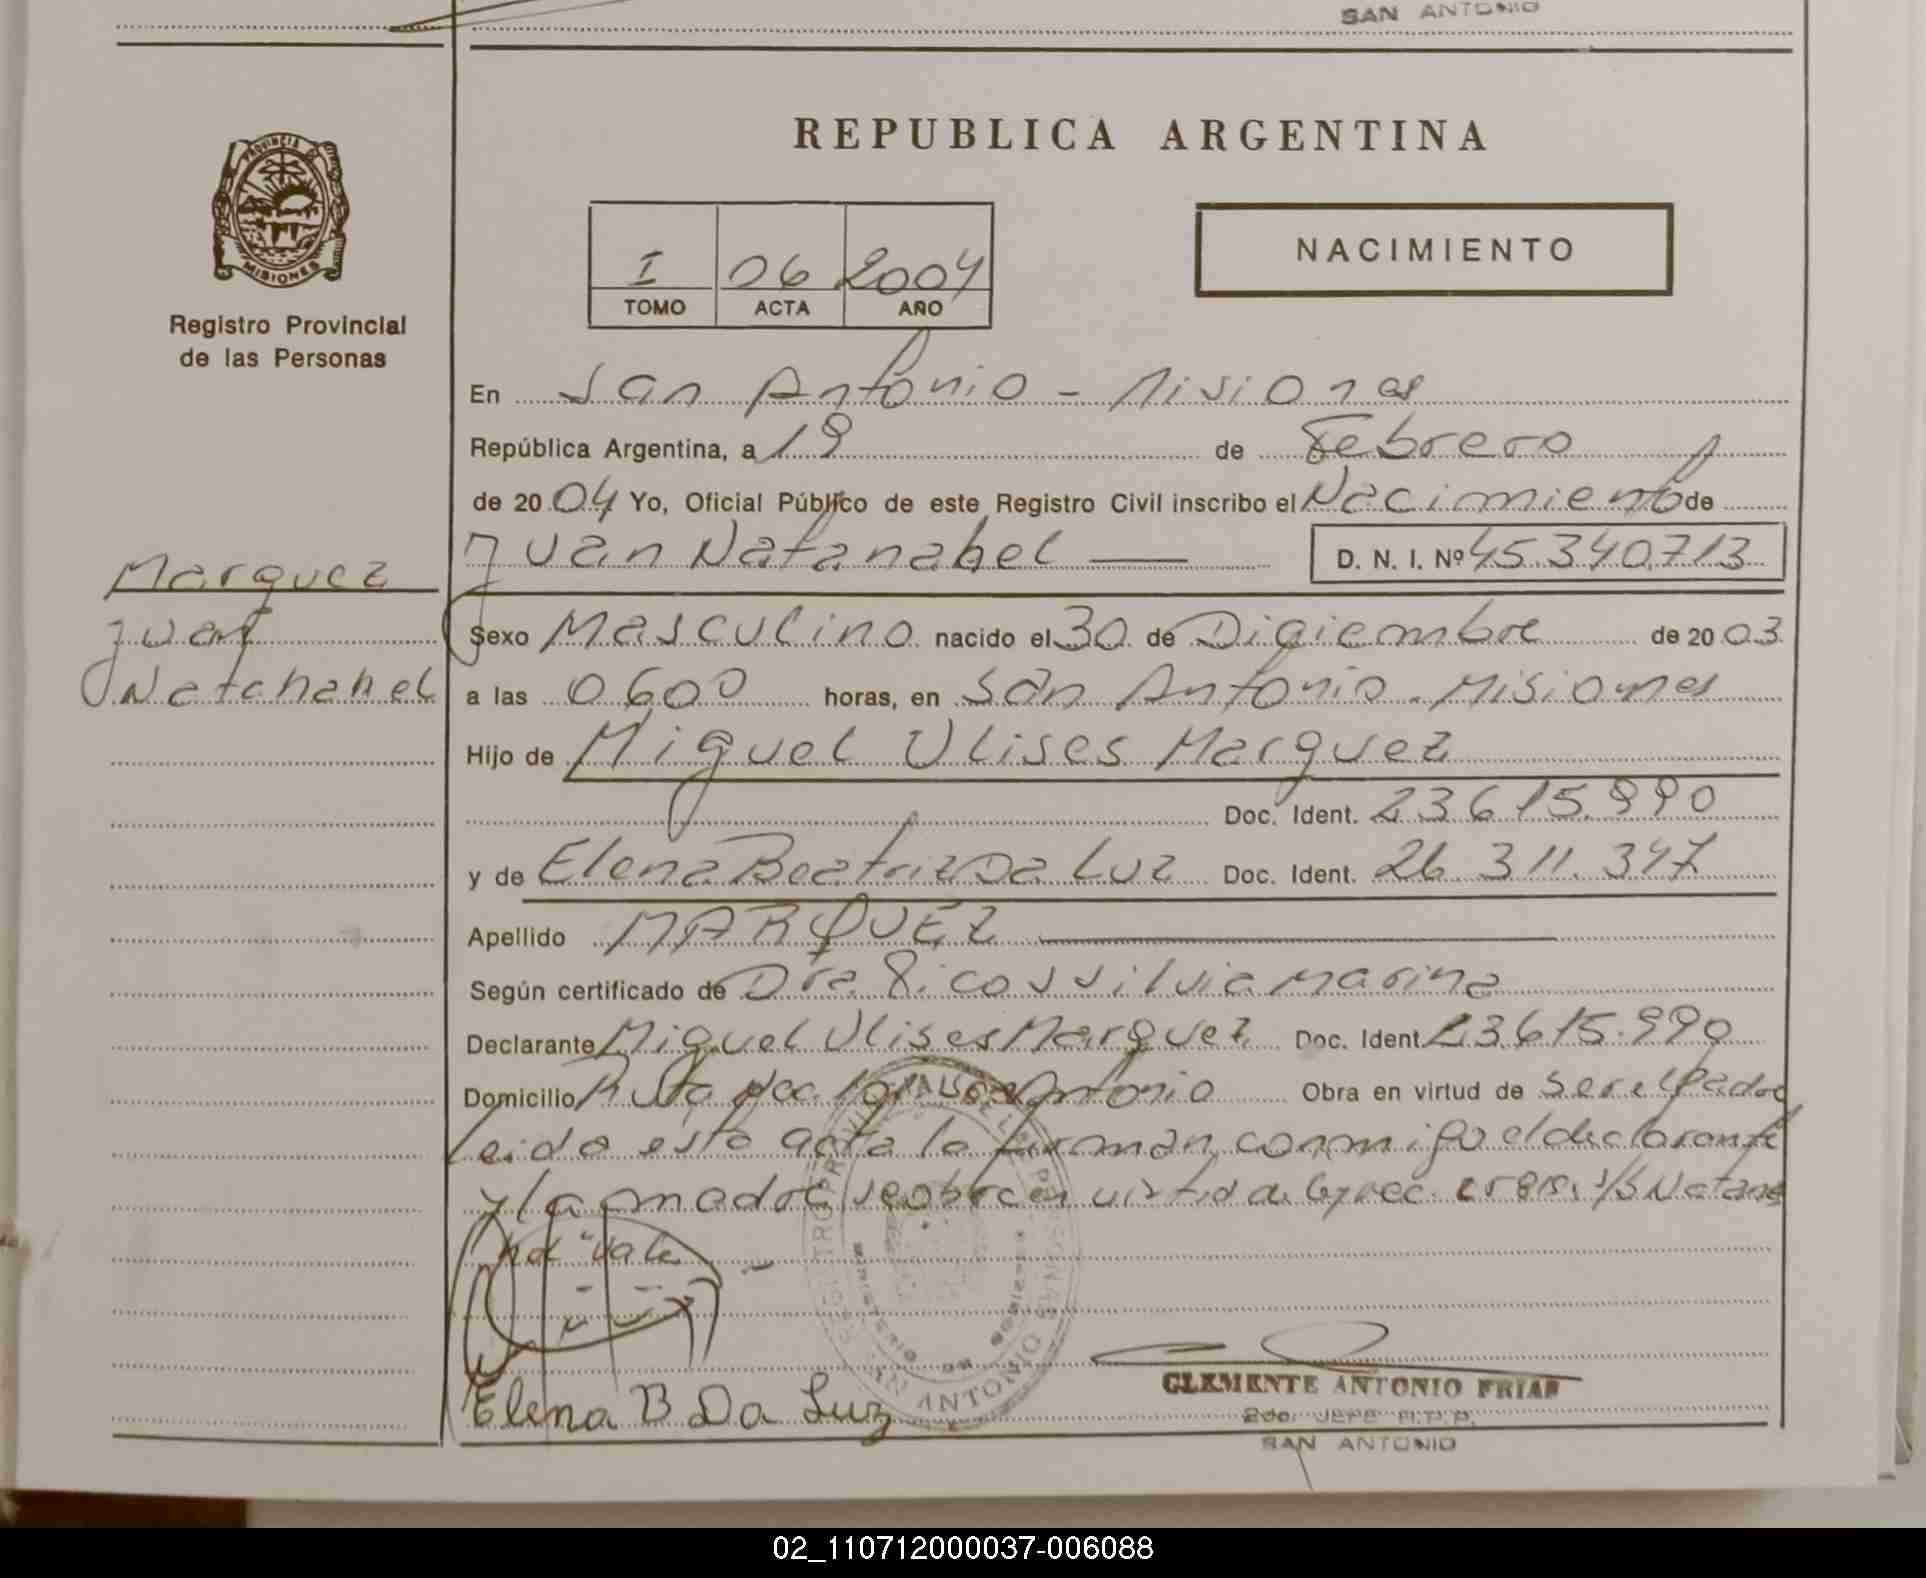 SAN ANTONIO
REPUBLICA ARGENTINA
PROVINCIA DE
MISIONES
Registro Provincial
de las Personas
I 06 2004
TOMO ACTA AÑO
NACIMIENTO
En San Antonio - Misiones
República Argentina, a 19 de Febrero
de 2004 Yo, Oficial Público de este Registro Civil inscribo el Nacimiento de
Juan Natanahel D. N. I. Nº 45.340.713
Marquez
Juan
Natanahel
Sexo Masculino nacido el 30 de Diciembre de 2003
a las 0600 horas, en San Antonio - Misiones
Hijo de Miguel Ulises Marquez
Doc. Ident. 23.615.990
y de Elena Beatriz Da Luz Doc. Ident. 26.311.347
Apellido MARQUEZ
Según certificado de Dra Ricos Silvia Marina
Declarante Miguel Ulises Marquez Doc. Ident. 23.615.990
Domicilio Ruta Antonio Obra en virtud de ser el padre
leida esta acta la firman conmigo el declarante
y la madre se obra en virtud de
"vale
Elena B Da Luz
CLEMENTE ANTONIO FRIAS
2do. JEFE R.P.P.
SAN ANTONIO
02_110712000037-006088